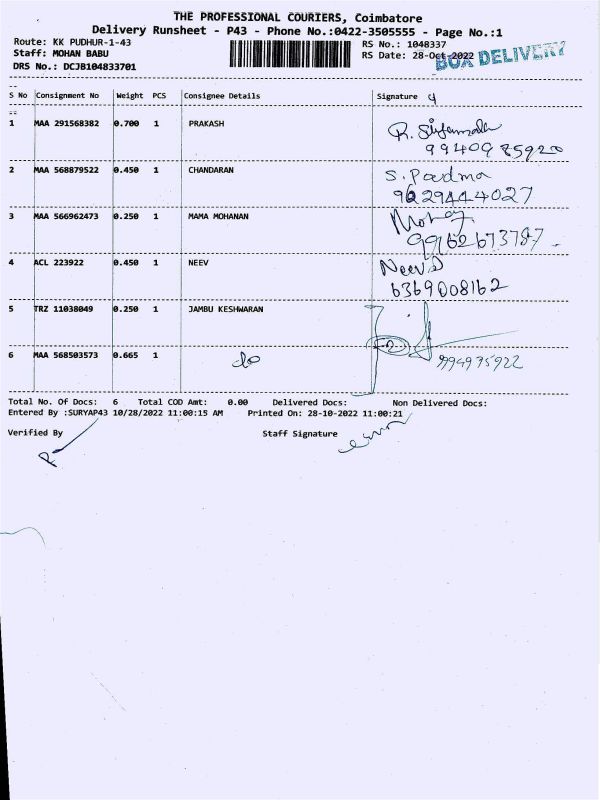 THE PROFESSIONAL COURIERS, Coimbatore
Delivery Runsheet - P43 - Phone No.:0422-3505555 - Page No.:1
Route: KK PUDHUR-1-43 RS No.: 1048337
Staff: MOHAN BABU RS Date: 28-Oct-2022 BOX DELIVERY
DRS No.: DCJB104833701
S No Consignment No Weight PCS Consignee Details Signature 4
1 MAA 291568382 0.700 1 PRAKASH
9940985920
2 MAA 568879522 0.450 1 CHANDARAN S. Padma
9629444027
3 MAA 566962473 0.250 1 MAMA MOHANAN
99162673787
4 ACL 223922 0.450 1 NEEV Neev
6369008162
5 TRZ 11038049 0.250 1 JAMBU KESHWARAN
6 MAA 568503573 0.665 1 do 2 999497 5922
Total No. Of Docs: 6 Total COD Amt: 0.00 Delivered Docs: Non Delivered Docs:
Entered By :SURYAP43 10/28/2022 11:00:15 AM Printed On: 28-10-2022 11:00:21
Verified By Staff Signature